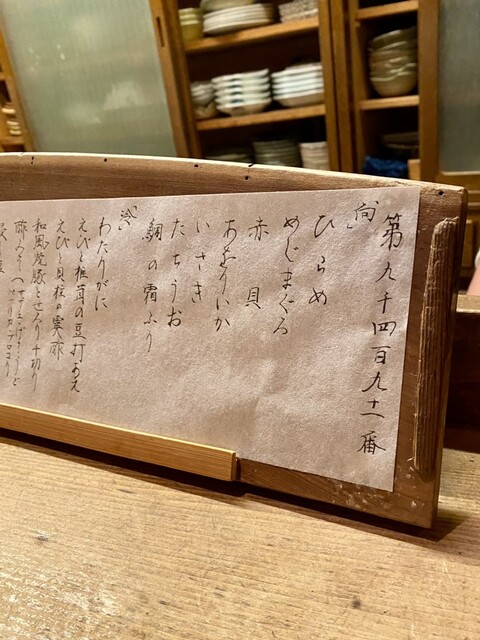 第九千四百九十一番
向
ひらめ
めじまぐろ
赤貝
あおりいか
いさき
たちうお
鯛の霜ふり
冷
わたりがに
えびと椎茸の豆打あえ
えびと貝柱の黄味酢
和風焼豚とせろり千切り